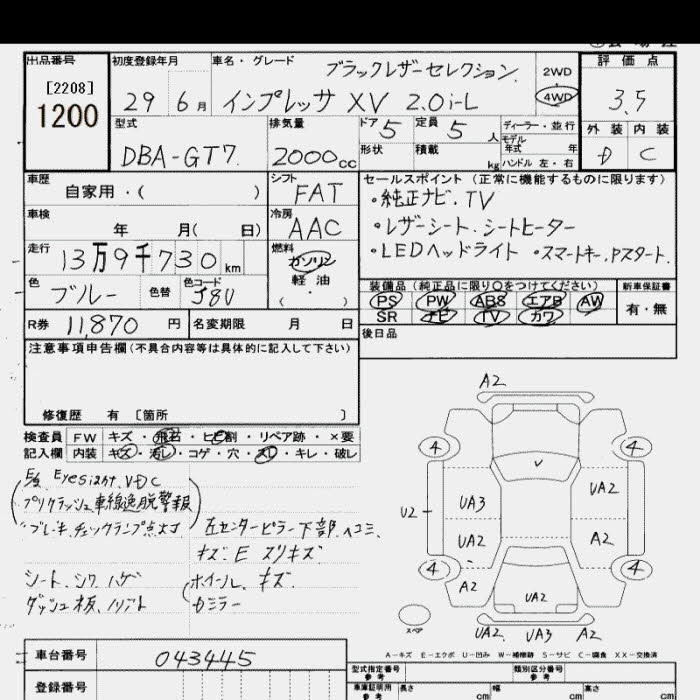 出品番号
[2208]
1200
初度登録年月
29 6月
車名・グレード
ブラックレザーセレクション
インプレッサ XV 2.0i-L
2WD
4WD
評価点
3.5
外装 内装
D C
型式
DBA-GT7
排気量
2000cc
ドア 5
定員 5人
形状
積載 kg
ディーラー・並行
モデル年式 年
ハンドル 左・右
車歴
自家用・( )
シフト
FAT
セールスポイント (正常に機能するものに限ります)
・純正ナビ.TV
・レザーシート.シートヒーター
・LEDヘッドライト ・スマートキー.Pスタート.
車検
年 月( 日)
冷房
AAC
走行
13万9千730km
燃料
ガソリン
軽油
・( )
色
ブルー
色替
色コード
J8U
装備品 (純正品に限り○をつけてください)
PS PW ABS エアB AW
SR ナビ TV カワ
新車保証書
有・無
R券 11,870 円
名変期限 月 日
後日品
注意事項申告欄 (不具合内容等は具体的に記入して下さい)
修復歴 有 〔箇所 〕
検査員
記入欄
FW キズ・飛石・ヒビ割・リペア跡・×要
内装 キズ・汚レ・コゲ・穴・スレ・キレ・破レ
Eyesight.VDC
プリクラッシュ.車線逸脱警報
ブレーキ.チェックランプ点灯
左センターピラー下部.ヘコミ.
キズ.E スリキズ
シート.シワ.ハゲ
ホイール.キズ.
ダッシュ板.ハリアト
カミラー
A2
4 4
V
UA3 UA2
U2
UA2 A2
4 4
A2
UA2
スペア
UA2 UA3 A2
A-キズ E-エクボ U-凹み W-補修跡 S-サビ C-腐食 XX-交換済
車台番号 043445
登録番号
型式指定番号 参考
類別区分番号 参考
車庫証明用 参考
長さ cm
幅 cm
高さ cm